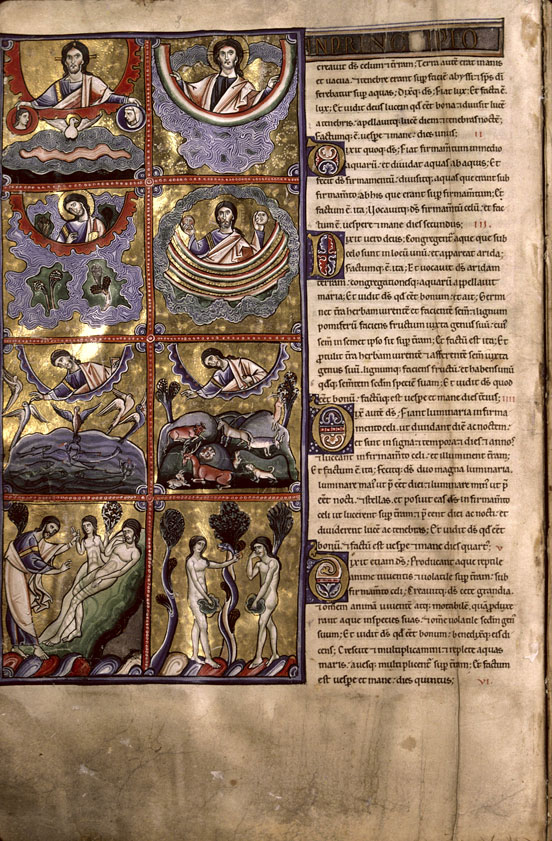 IN PRINCIPIO
creauit ds celum & terram; Terra autē erat inanis
et uacua. & tenebre erant sup faciē abyssi: & sps di
ferebatur sup aquas; Dixitq; ds; Fiat lux; Et facta ē
lux; Et uidit deus lucem qd eēt bona: & diuisit lucē
a tenebris. appellauitq; lucē diem: & tenebras noctē;
Factumq; ē uespe & mane: dies unus; II
Dixit quoq; ds; Fiat firmamentū in medio
aquarū: et diuidat aquas ab aquis; Et
fecit ds firmamentū. diuisitq; aquas que erant sub
firmamto. ab his que erant sup firmamtum; Et
factum ē ita; Uocauitq; ds firmamtū celū; & fac
tum ē uespere & mane: dies secundus; III.
Dixit uero deus; Congregentr aque que sub
celo sunt in locū unū: & appareat arida;
Factumq; ē ita; Et uocauit ds aridam
terram. congregationesq; aquarū appellauit
maria; Et uidit ds qd eēt bonum: & ait; Germi
net terra herbam uirentē et facientē semen: & lignum
pomiferū faciens fructum iuxta genus suū. cuius
semen in semet ipso sit sup terram; Et factū ē ita; Et
protulit terra herbam uirentē & afferentē semen iuxta
genus suū. lignumq; faciens fructū: & habens unū
qdq; sementem scdm speciem suam; Et uidit ds quod
eēt bonū. factumq; ē uespe & mane dies tertius; IIII
Dixit autē ds; Fiant luminaria in firma
mento celi. ut diuidant diē ac noctem:
et sint in signa & tempora & dies & annos:
ut luceant in firmamto celi. et illuminent terram;
Et factum ē ita; Fecitq; ds duo magna luminaria.
luminare maius ut p eēt diei: & luminare minus ut p
eēt nocti. & stellas. et posuit eas ds in firmamto
celi ut lucerent sup terram: & p eēnt diei ac nocti: et
diuiderent lucē ac tenebras; Et uidit ds qd eēt
bonū: & factū est uespe & mane dies quartus; V
Dixit etiam ds; Producant aque reptile
anime uiuentis & uolatile sup terram. sub
firmamto celi; Creauitq; ds cete grandia.
& omem animā uiuentē atq; motabilē. quā pduxe
rant aque in species suas: & ome uolatile scdm gen
suum; Et uidit ds qd eēt bonum: benedixitq; eis di
cens; Crescite & multiplicamini: & replete aquas
maris. auesq; multiplicentur sup terram; Et factum
est uespe et mane: dies quintus; VI